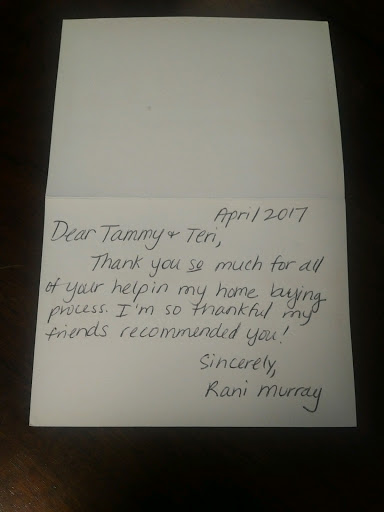 April 2017
Dear Tammy + Teri,
Thank you so much for all
of your help in my home buying
process. I'm so thankful my
friends recommended you!
Sincerely,
Rani Murray